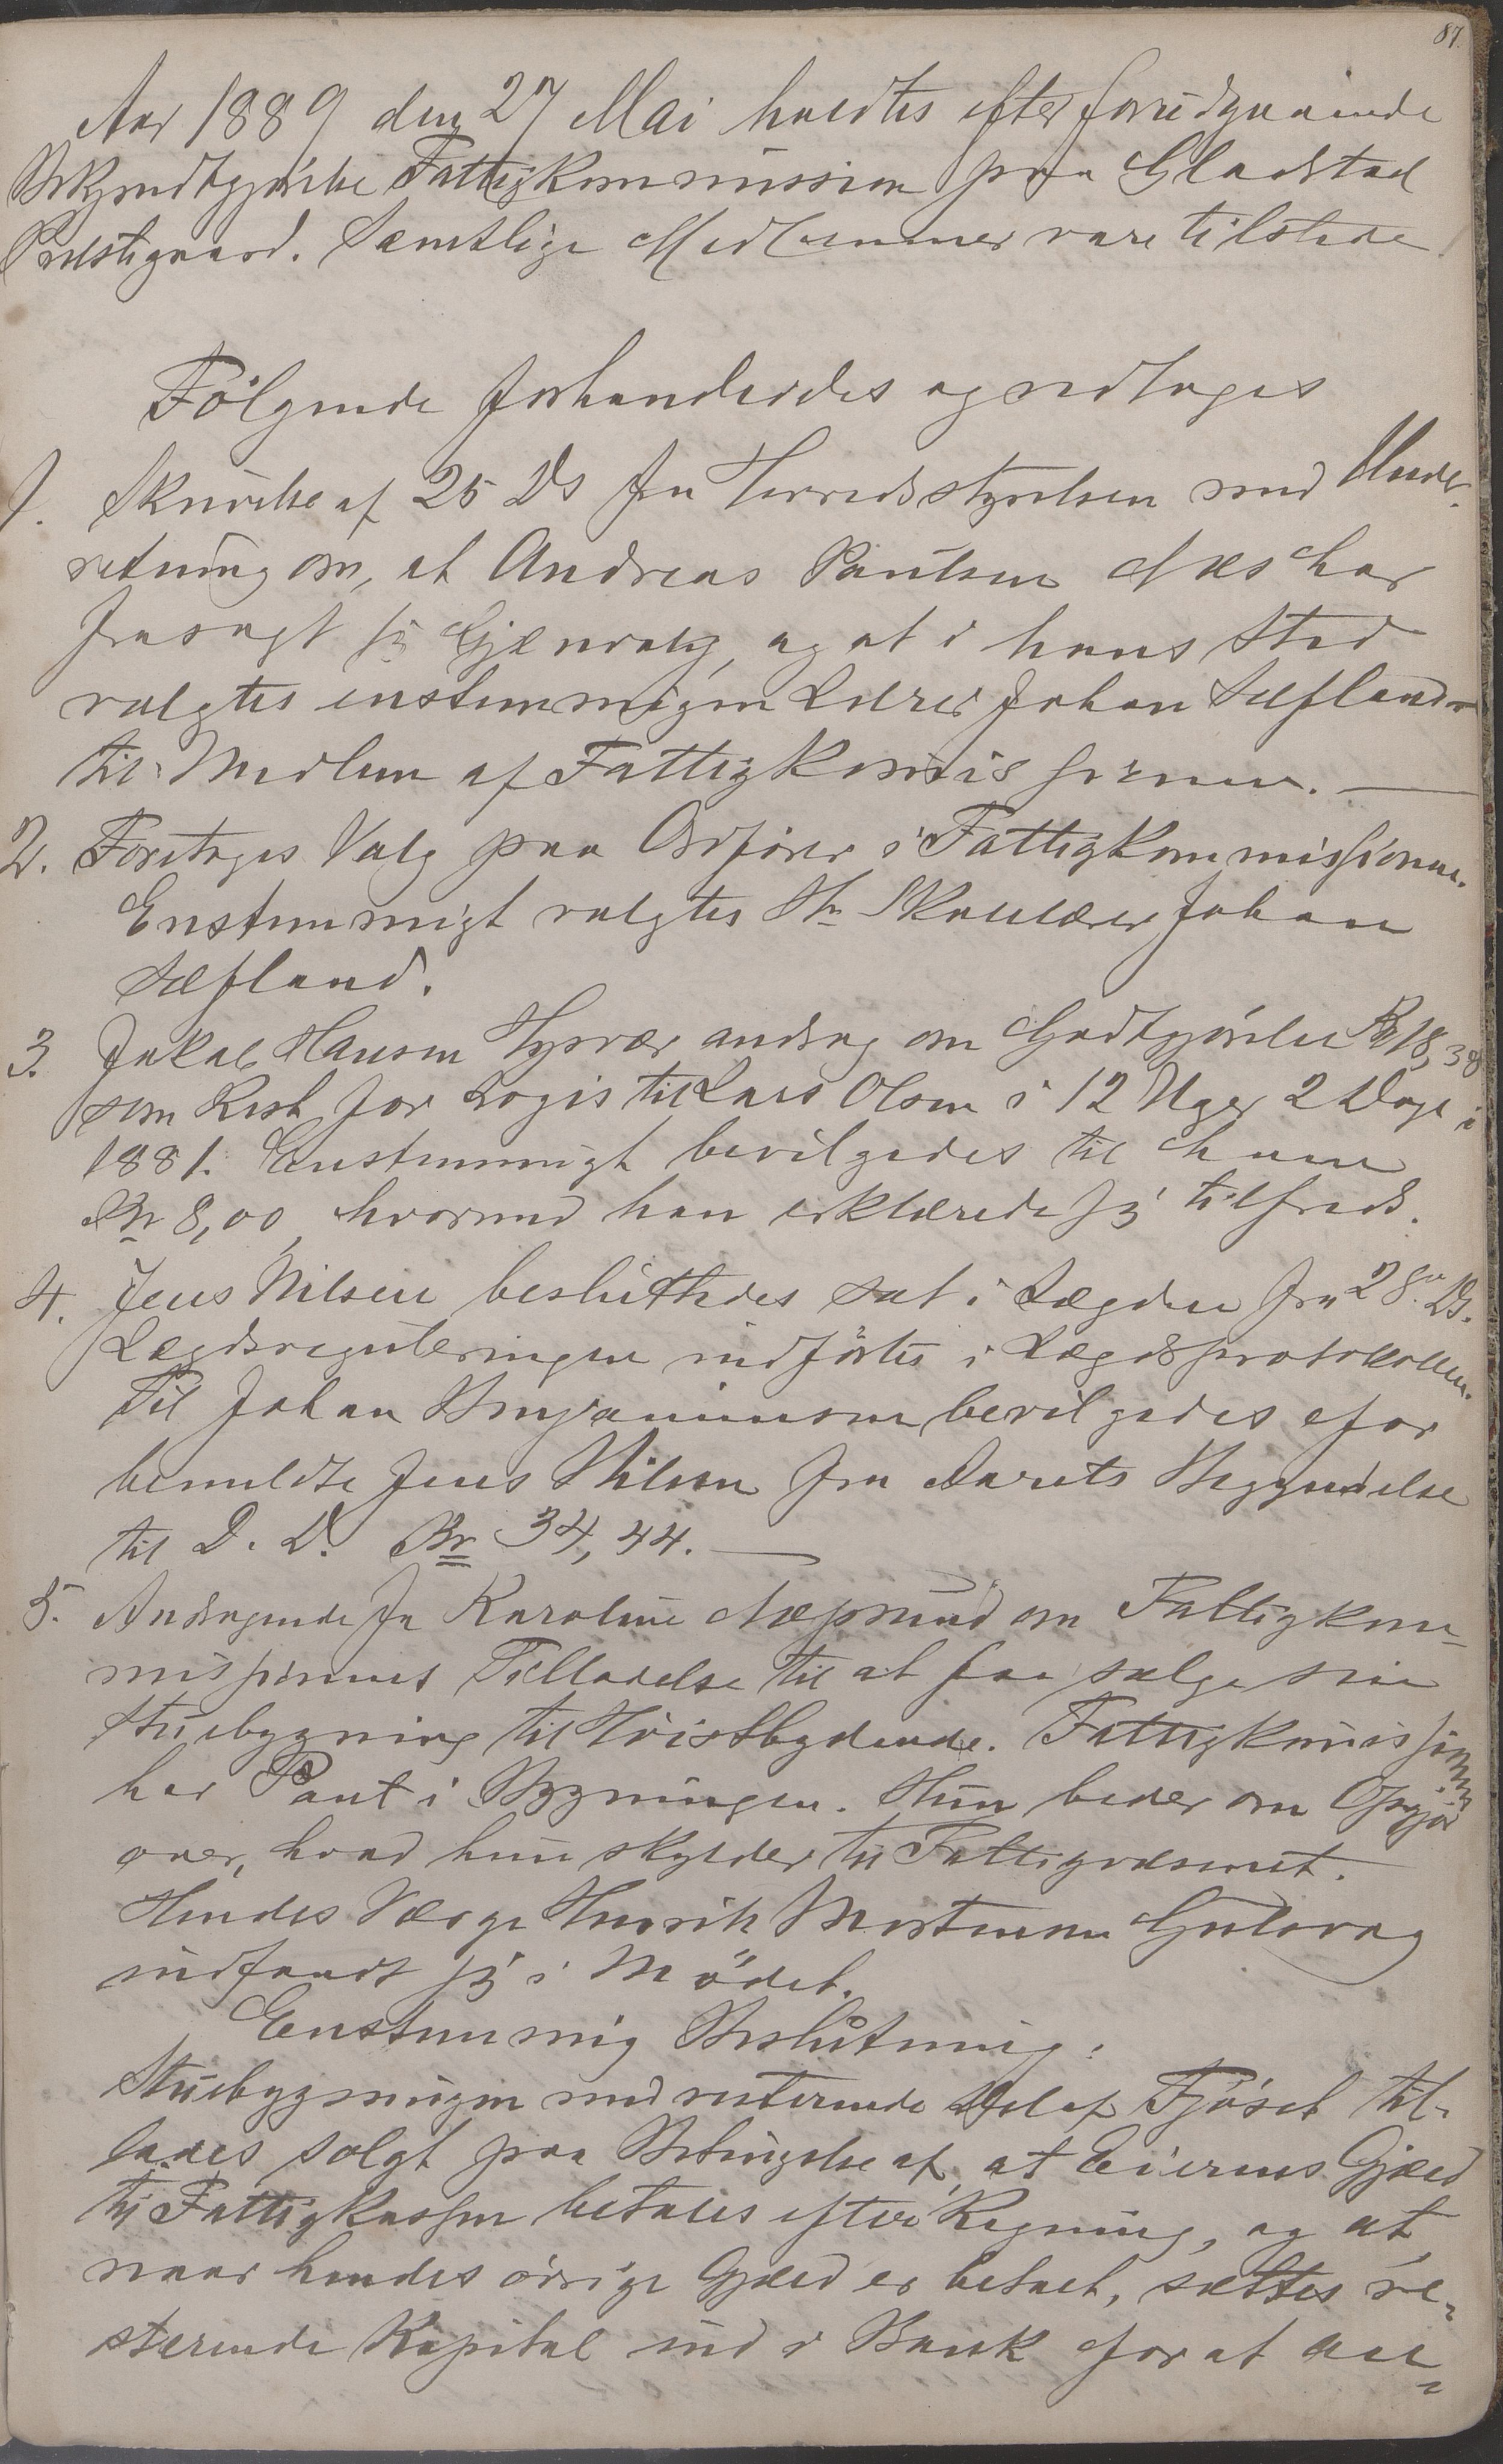 87.
Aar 1889 den 27 Mai holdtes efter forudgaaende
Bekjendtgjørelse Fattigkommission paa Gladstad
Prestegaard. Samtlige Medlemmer vare tilstede
Følgende forhandledes og vedtoges
1. Skrivelse af 25 Ds fra Herredsstyrelsen med Under-
retning om, at Andreas Paulsen Næs har
frasagt sig Gjenvalg, og at i hans Sted
valgtes enstemmigen Lærer Johan Sæfland
til Medlem af Fattigkommissionen. —
2. Foretoges Valg paa Ordfører i Fattigkommissionen.
Enstemmigt valgtes Hr Skolelærer Johan
Sæfland.
3. Jakob Hansen Hysvær androg om Godtgjørelse Kr 18,38
som Rest for Logis til Lars Olsen i 12 Uger 2 Dage i
1881. Enstemmigt bevilgedes til ham
Kr 8,00, hvormed han erklærede sig tilfreds.
4. Jens Nilsen besluttedes sat i Lægden fra 28de Ds.
Lægdsreguleringen indførtes i Lægdsprotokollen.
Til Johan Benjaminsen bevilgedes for
bemeldte Jens Nilsen fra Aarets Begyndelse
til D. D. Kr 34,44. —
5. Andragende fra Karoline Næsmud om Fattigkom-
missionens Tilladelse til at faa sælge sin
Stuebygning til Høistbydende. Fattigkommissionen
har Pant i Bygningen. Hun beder om Opgjør
over, hvad hun skylder til Fattigvæsenet.
Hendes Værge Henrik Mortensen Gulsvag
indfandt sig i Mødet.
Enstemmig Beslutning:
Stuebygningen med resterende Del af Fjøset til-
lades solgt paa Betingelse af, at Eierens Gjæld
til Fattigkassen betales efter Regning, og at
naar hendes øvrige Gjæld er betalt, sættes re-
sterende Kapital ind i Bank for at an-